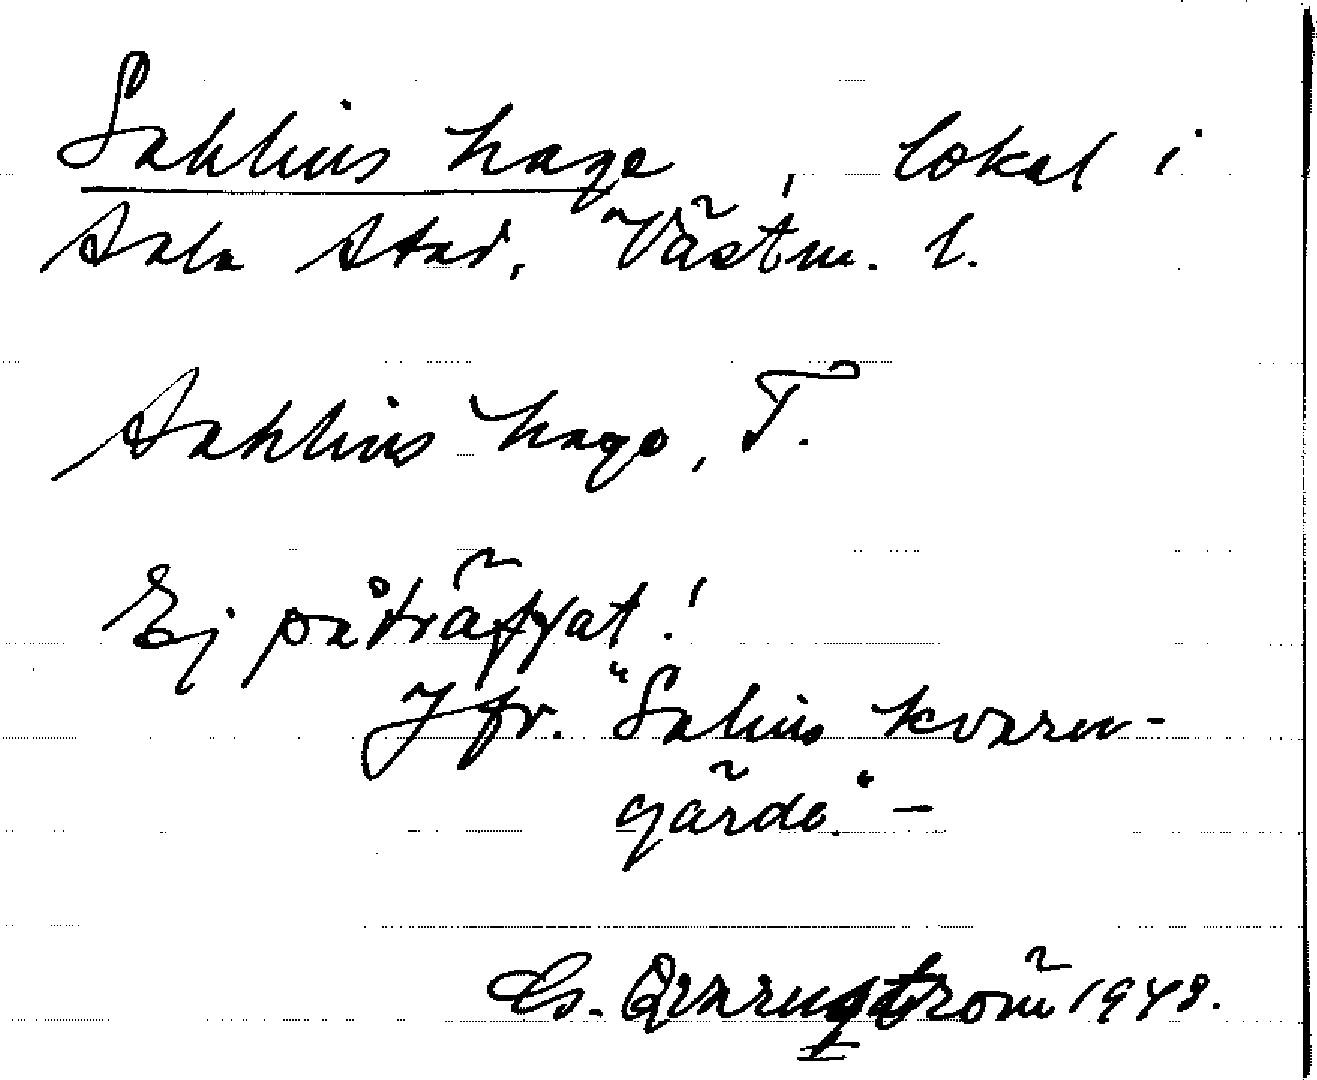 Sahlius hage, lokal i
Sala stad, Västm. l.
Sahlius hage, T.
Ej påträffat!
Jfr. "Salius kvarn-
gärde." –
Es. Qvarnström 1948.